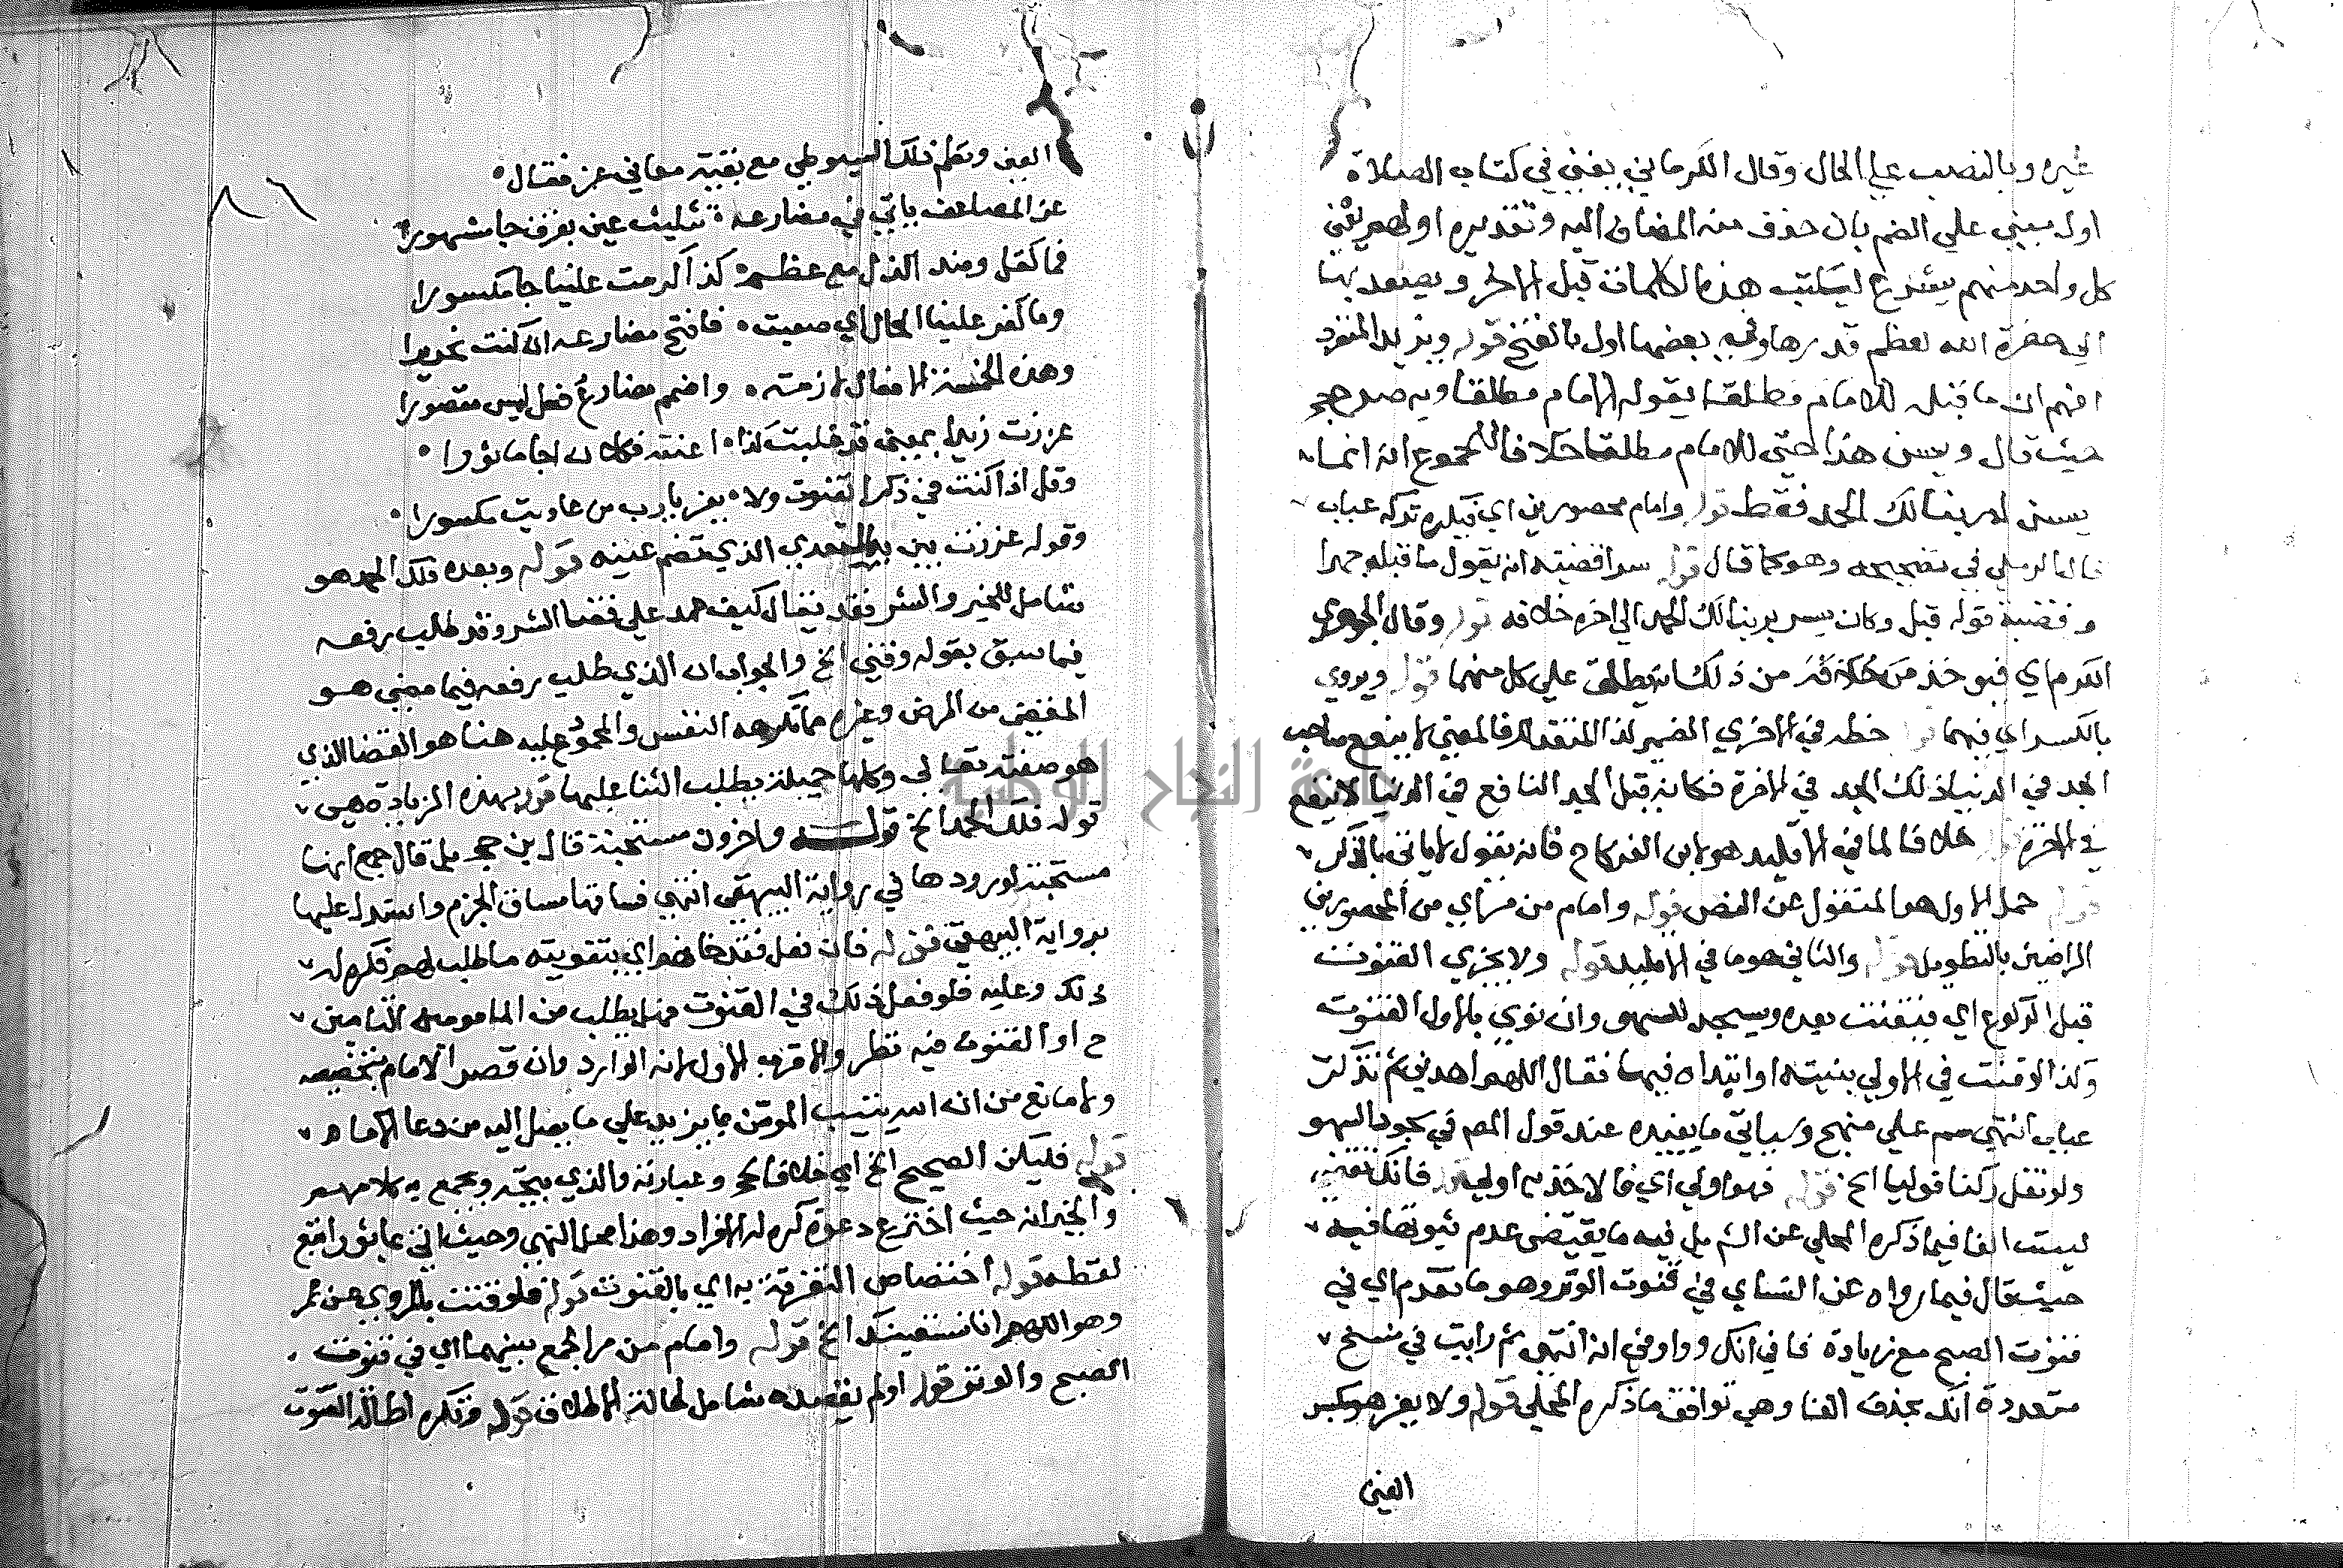 غيره وبالنصب علي الحال وقال الكرماني يعني في كتاب الصلاة
اول مبني علي الضم بان حذف منه المضاف اليه وتقديره اولهم يعني
كل واحد منهم يسرع ليكتب هذه الكلمات قبل الاخر ويصعد بها
الي حضرة الله لعظم قدرها وفي بعضها اول بالفتح قوله ويزيد المنفرد
افهم ان ما قبله للامام مطلقا بقوله الامام مطلقا وبه صرح حجر
حيث قال ويسن هذا حتي للامام مطلقا خلافا للمجموع انه انما
يسن له ربنا لك الحمد فقط قوله وامام محصورين اي فيكره تركه عباب
خالفا للرملي في تصحيحه وهو كما قال قوله سرا قضيته انه يقول ما قبله جهرا
وقضية قوله قبل وكان يسر بربنا لك الحمد الي اخره خلافه قوله وقال الجوهري
الكرماي فهو خذ من ذلك يطلق علي كل منهما قوله ويروي
بالكسر اي فيهما قوله حظه في الاخري الضمير لذا المتقدم فالمعني لا ينفع صاحب
الجد في الدنيا ذلك الجد في الاخرة فكانه قيل الجد النافع في الدنيا لا ينفع
في الاخرة قوله خلافا لما في الاقليد هو لابن الفركاح فانه يقول لا ياتي بالذكر
قوله حمل الاول هو المنقول عن النص قوله وامام من مر اي من المحصورين
الراضين بالتطويل قوله والثاني هو ما في الاقليد قوله ولا يجزي القنوت
قبل الركوع اي فيقنت بعده ويسجد للسهو وان نوي بالاول القنوت
وكذا لو قنت في الاولي بنيته او ابتداه فيها فقال اللهم اهدني ثم تذكر
عباب انتهي سم علي منهج وسياتي ما يفيده عند قول المص في سجود السهو
ولو نقل ركنا قوليا الخ قوله فهو اولي اي فالاخذ به اولي قوله فانك تقضي
ليست الفا فيما ذكره المحلي عن الشرح بل فيه ما يقتضي عدم ثبوتها فيه
حيث قال فيما رواه عن النساي في قنوت الوتر وهو ما تقدم اي في
قنوت الصبح مع زيادة فا في انك وواو في انه انتهي ثم رايت في نسخ
متعددة انك بحذف الفا وهي توافق ما ذكره المحلي قوله ولا يعز هو بكسر
العين
العين ونظم ذلك السيوطي مع بقية معاني عز فقال
عز المضاعف ياتي في مضارعه تثليث عين بفرق جا مشهورا
فما كقل وضد الذل مع عظم كذا كرمت علينا جا مكسورا
وما كعز علينا الحال اي صعبت فافتح مضارعه ان كنت نحريرا
وهذه الخمسة الافعال لازمة واضمم مضارع فعل ليس مقصورا
عززت زيدا بمعني قد غلبت كذا اعنته فكلا ذا جا ماثورا
وقل اذا كنت في ذكر القنوت ولا يعز يا رب من عاديت مكسورا
وقوله عززت بين به المتعدي الذي تضم عينه قوله وبعده فلك الحمد هو
شامل للخير والشر فقد يقال كيف حمد علي قضا الشر وقد طلب رفعه
فيما سبق بقوله وقني الخ والجواب ان الذي طلب رفعه فيما مضي هو
المقضي من المرض وغيره مما تكرهه النفس والمحمود عليه هنا هو القضا الذي
هو صفته تعالي وكلها جميلة يطلب الثنا عليها قوله بهذه الزيادة هي
قوله فلك الحمد الخ قوله واخرون مستحبة قال بن حجر بل قال جمع انها
مستحبة لورودها في رواية البيهقي انتهي فساقها مساق الجزم واستدل عليها
برواية البيهقي قوله فان فعل فقد خانهم اي بتفويته ما طلب لهم فكره له
ذلك وعليه فلو فعل ذلك في القنوت فهل يطلب من المامومين التامين
ح او القنوت فيه نظر والاقرب الاول لانه الوارد وان قصر الامام بتخصيصه
ولا مانع من ان الله يثيب المؤمن بما يزيد علي ما يصل اليه من دعا الامام
قوله فليكن الصحيح الخ اي خلافا لحج وعبارته والذي يتجه ويجمع به كلامهم
والخبر انه حيث اخترع دعوة كره له الافراد وهذا محمل النهي وحيث اتي بماثور اتبع
لفظه قوله اختصاص التفرقة به اي بالقنوت قوله فلو قنت بالمروي عن عمر
وهو اللهم انا نستعينك الخ قوله وامام من مر الجمع بينهما اي في قنوت
الصبح والوتر قوله اولم يقيده شامل لحالة الاطلاق قوله وتكره اطالة القنوت